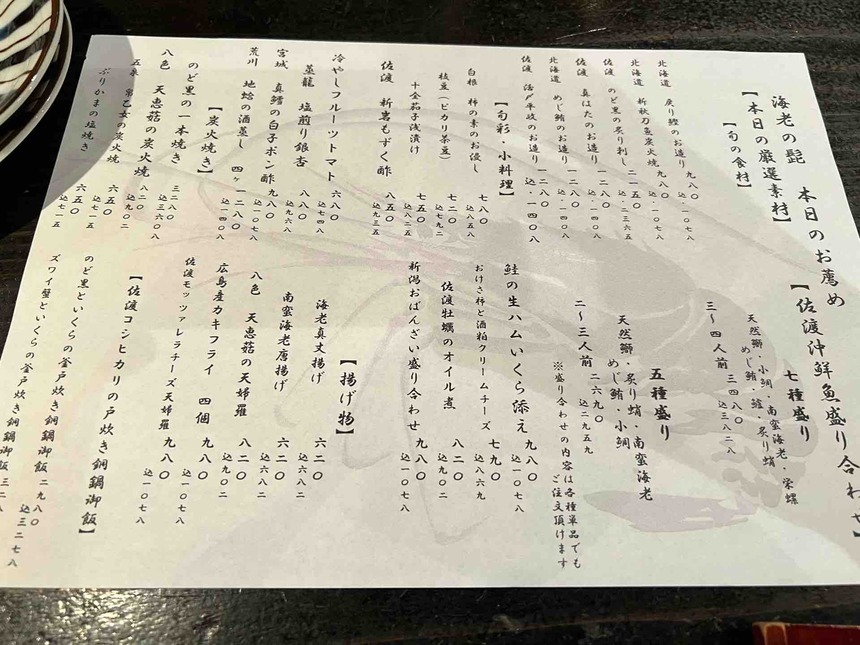 海老の髭 本日のお薦め
【本日の厳選素材】
【佐渡沖鮮魚盛り合わせ】
七種盛り
天然鰤・小鯛・南蛮海老・栄螺
めじ鮪・鱧・炙り蛸
三〜四人前 三四八〇
込三八二八
五種盛り
天然鰤・炙り蛸・南蛮海老
めじ鮪・小鯛
二〜三人前 二六九〇
込二九五九
※盛り合わせの内容は各種単品でも
ご注文頂けます
【旬の食材】
北海道 戻り鰹のお造り 九八〇
込一〇七八
北海道 新秋刀魚炭火焼 九八〇
込・一〇七八
佐渡 のど黒の炙り刺し 二一五〇
込・二三六五
佐渡 真はたのお造り 一二八〇
込・一四〇八
北海道 めじ鮪のお造り 一二八〇
込・一四〇八
佐渡 活〆平政のお造り 一二八〇
込・一四〇八
【旬彩・小料理】
白根 柿の素のお浸し 七八〇
込八五八
枝豆(ピカリ茶豆) 七二〇
込七九二
十全茄子浅漬け 七五〇
込八二五
佐渡 新岩もずく酢 八五〇
込九三五
冷やしフルーツトマト 六八〇
込七四八
塩煎り銀杏 八八〇
込九六八
宮城 真鱈の白子ポン酢 九八〇
込一〇七八
荒川 地蛤の酒蒸し 四ヶ 一二八〇
込一四〇八
鮭の生ハムいくら添え 九八〇
込一〇七八
おけさ柿と酒粕クリームチーズ 七九〇
込八六九
佐渡牡蠣のオイル煮 八二〇
込九〇二
新潟おばんざい盛り合わせ 九八〇
込一〇七八
【炭火焼き】
のど黒の一本焼き 三二八〇
込三六〇八
八色 天恵菇の炭火焼 八二〇
込九〇二
五泉 帛乙女の炭火焼 六五〇
込七一五
ぶりかまの塩焼き 六五〇
込七一五
【揚げ物】
海老真丈揚げ 六二〇
込六八二
南蛮海老唐揚げ 六二〇
込六八二
八色 天恵菇の天婦羅 八二〇
込九〇二
広島産カキフライ 四個 九八〇
込一〇七八
佐渡モッツァレラチーズ天婦羅 九八〇
込一〇七八
【佐渡コシヒカリの戸炊き銅鍋御飯】
のど黒といくらの釜戸炊き銅鍋御飯 二九八〇
込三二七八
ズワイ蟹といくらの釜戸炊き銅鍋御飯